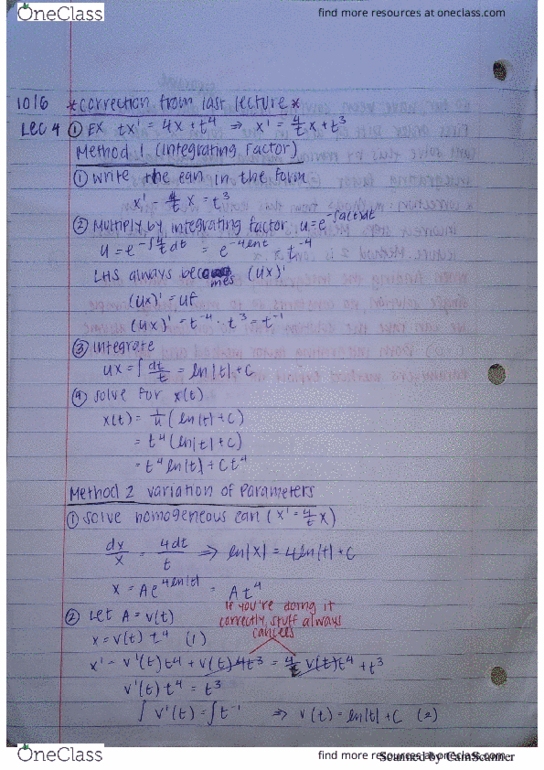 OneClass
find more resources at oneclass.com
10/6 *correction from last lecture*
Lec 4 ① EX tx' = 4x + t⁴ ⇒ x' = 4/t x + t³
Method 1 (Integrating Factor)
① Write the eqn in the form
x' - 4/t x = t³
② Multiply by integrating factor u = e^-∫a(t)dt
u = e^-∫4/t dt = e^-4lnt = t⁻⁴
LHS always becomes (ux)'
(ux)' = uf
(ux)' = t⁻⁴ · t³ = t⁻¹
③ integrate
ux = ∫ dt/t = ln|t| + C
④ solve for x(t)
x(t) = 1/u (ln|t| + C)
= t⁴ (ln|t| + C)
= t⁴ ln|t| + Ct⁴
Method 2 Variation of Parameters
① solve homogeneous eqn (x' = 4/t x)
dx/x = 4dt/t ⇒ ln|x| = 4ln|t| + C
x = Ae^4ln|t| = At⁴
② Let A = v(t)
If you're doing it
correctly, stuff always
cancels
x = v(t) t⁴ (1)
x' = v'(t)t⁴ + v(t)4t³ = 4/t v(t)t⁴ + t³
v'(t) t⁴ = t³
∫ v'(t) = ∫ t⁻¹ ⇒ v(t) = ln|t| + C (2)
OneClass
find more resources at oneclass.com
Scanned by CamScanner